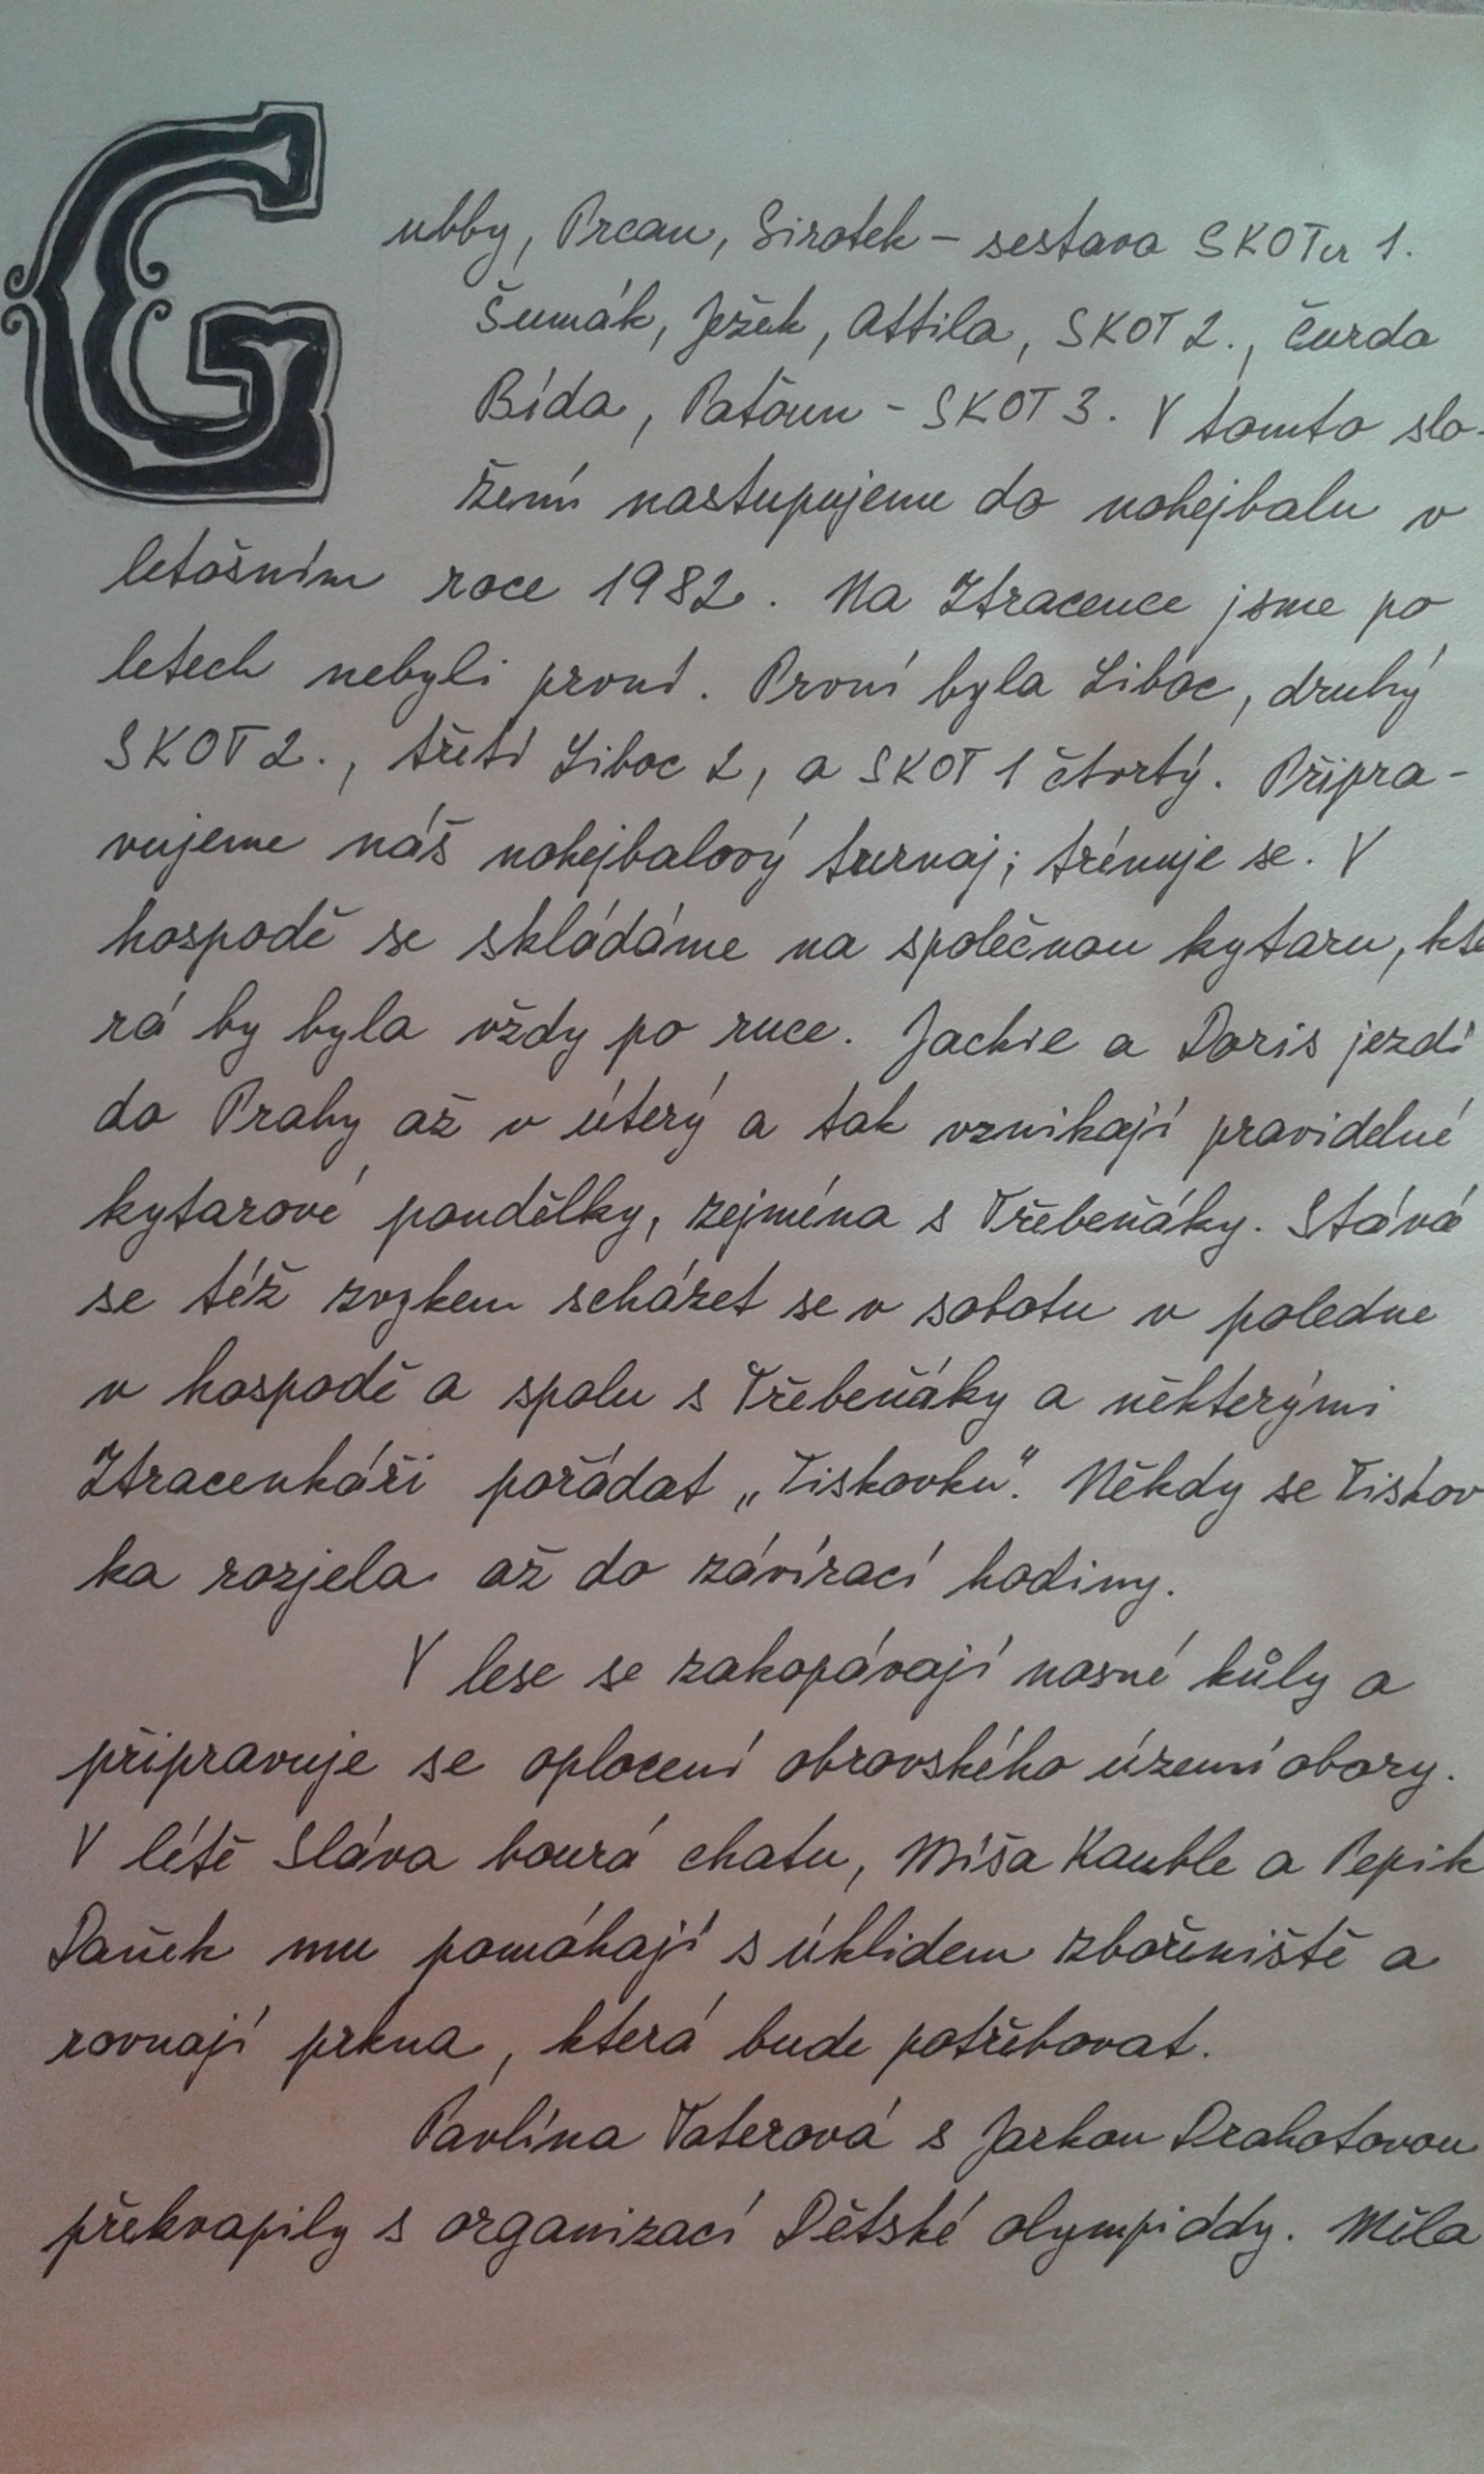 Gubby, Prcan, Sirotek – sestava SKOTu 1.
Šumák, Ježek, Attila, SKOT 2., Čurda
Bída, Paťoun - SKOT 3. V tomto slo-
žení nastupujeme do nohejbalu v
letošním roce 1982. Na Ztracence jsme po
letech nebyli první. První byla Liboc, druhý
SKOT 2., třetí Liboc 2, a SKOT 1 čtvrtý. Připra-
vujeme náš nohejbalový turnaj; trénuje se. V
hospodě se skládáme na společnou kytaru, kte
rá by byla vždy po ruce. Jackie a Doris jezdí
do Prahy až v úterý a tak vznikají pravidelné
kytarové pondělky, zejména s Třebeňáky. Stává
se též zvykem scházet se v sobotu v poledne
v hospodě a spolu s Třebeňáky a některými
Ztracenkáři pořádat „Tiskovku". Někdy se Tiskov
ka rozjela až do závírací hodiny.
V lese se zakopávají nosné kůly a
připravuje se oplocení obrovského území obory.
V létě Sláva bourá chatu, Míša Kauble a Pepik
Daněk mu pomáhají s úklidem zbořeniště a
rovnají prkna, která bude potřebovat.
Pavlína Vaterová s Jarkou Drahotovou
překvapily s organizací Dětské olympiády. Měla